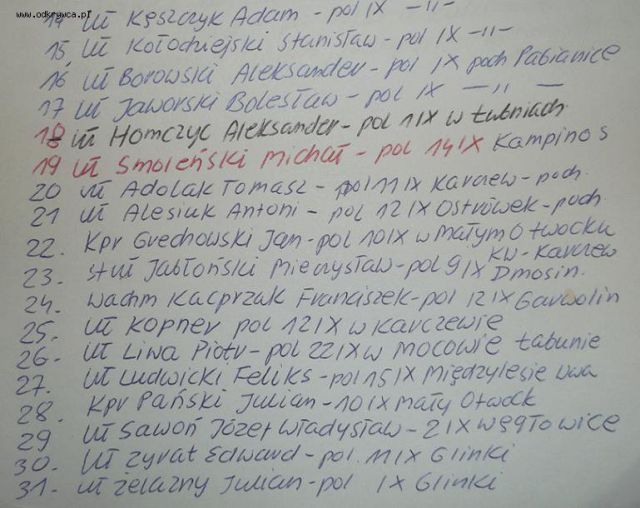 www.odkrywca.pl
14 Uł Kęszczyk Adam - pol IX -II-
15, Uł Kołodziejski Stanisław - pol IX -II-
16, Uł Borowski Aleksander - pol IX poch Pabianice
17 Uł Jaworski Bolesław - pol IX -II-
18 uł Homczyc Aleksander - pol 1 IX w Łubniach
19 Uł Smoleński Michał - pol 14 IX Kampinos
20 uł Adolak Tomasz - pol 11 IX Karczew - poch.
21 Uł Alesiuk Antoni - pol 12 IX Ostrówek - poch.
22. Kpr Grechowski Jan - pol 10 IX w Małym Otwocku
KW - Karczew
23. st uł Jabłoński Mieczysław - pol 9 IX Dmosin.
24. Wachm Kacprzak Franciszek - pol 12 IX Garwolin
25. Uł Kopner pol 12 IX w Karczewie
26. Uł Liwa Piotr - pol 22 IX w Mocowie Łabunie
27. Uł Ludwicki Feliks - pol 15 IX Międzylesie Wwa
28. Kpr Pański Julian - 10 IX Mały Otwock
29 Uł Sawoń Józef Władysław - 2 IX Węgłowice
30. Uł Zyrat Edward - pol. 11 IX Glinki
31. Uł Żelazny Julian - pol IX Glinki